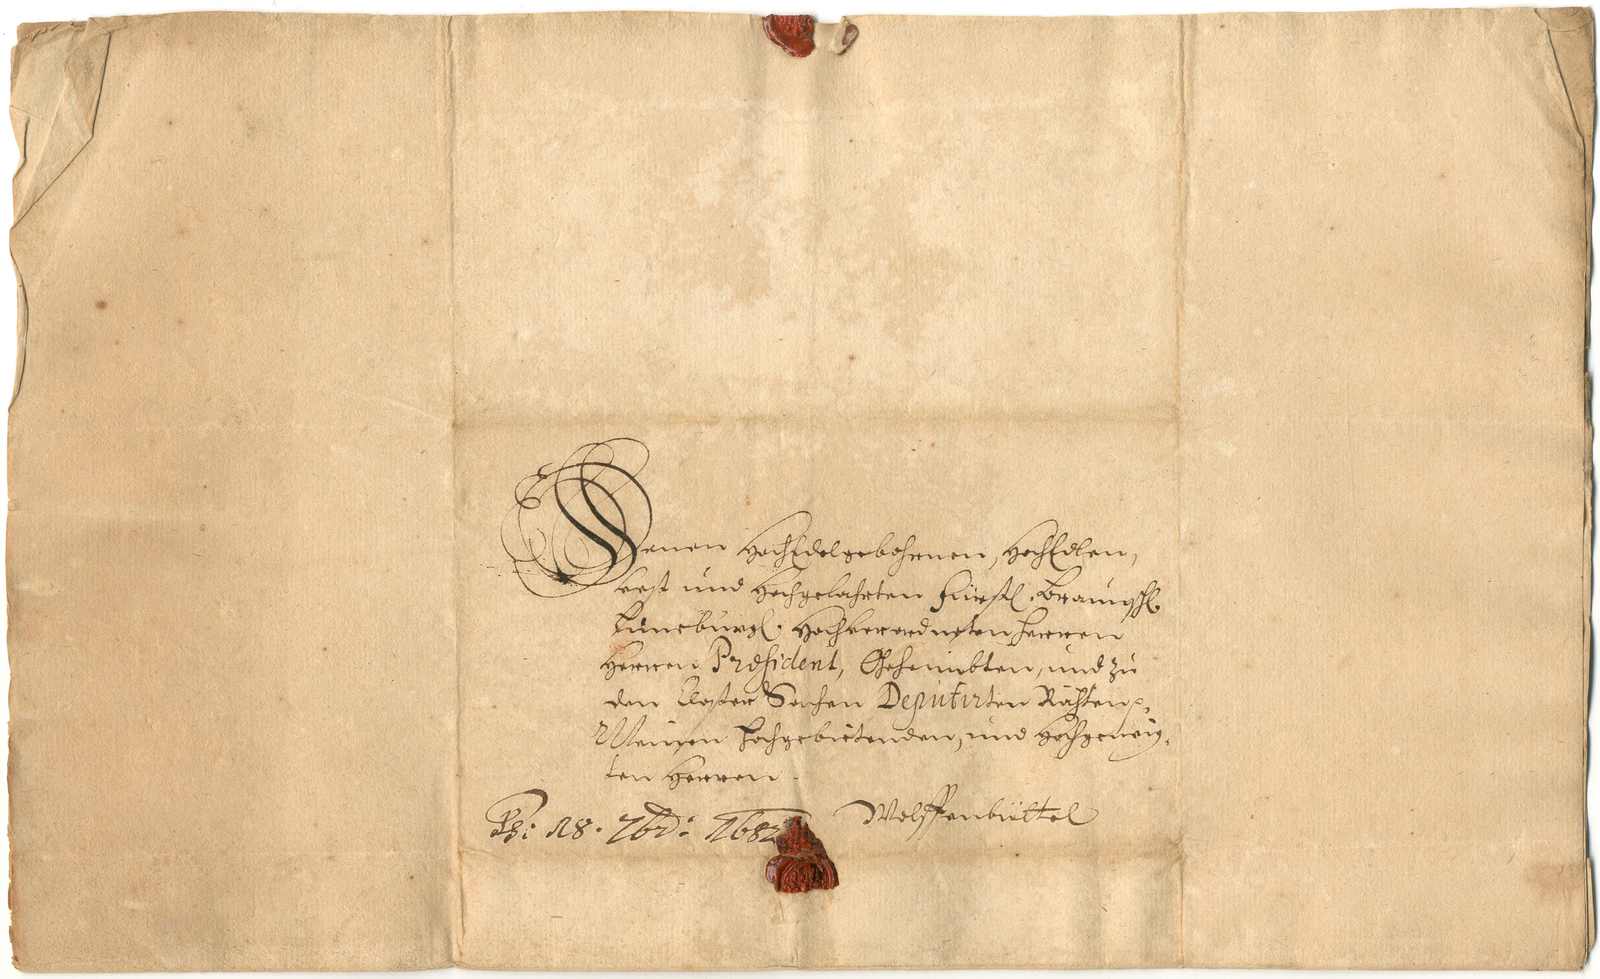 Denen HochEdelgebohrnen, HochEdlen,
Vest und Hochgelahrten Fürstl. Braunschl.
Lüneburgl. Hochverordneten Herren
Herren Præsident, Geheimbten, und zu
den Closter Sachen Deputirten Rähten p.
Meinen Hochgebietenden, und Hochgeneig-
ten Herren.
Ps: 18. 7br: 1682
Wolffenbüttel